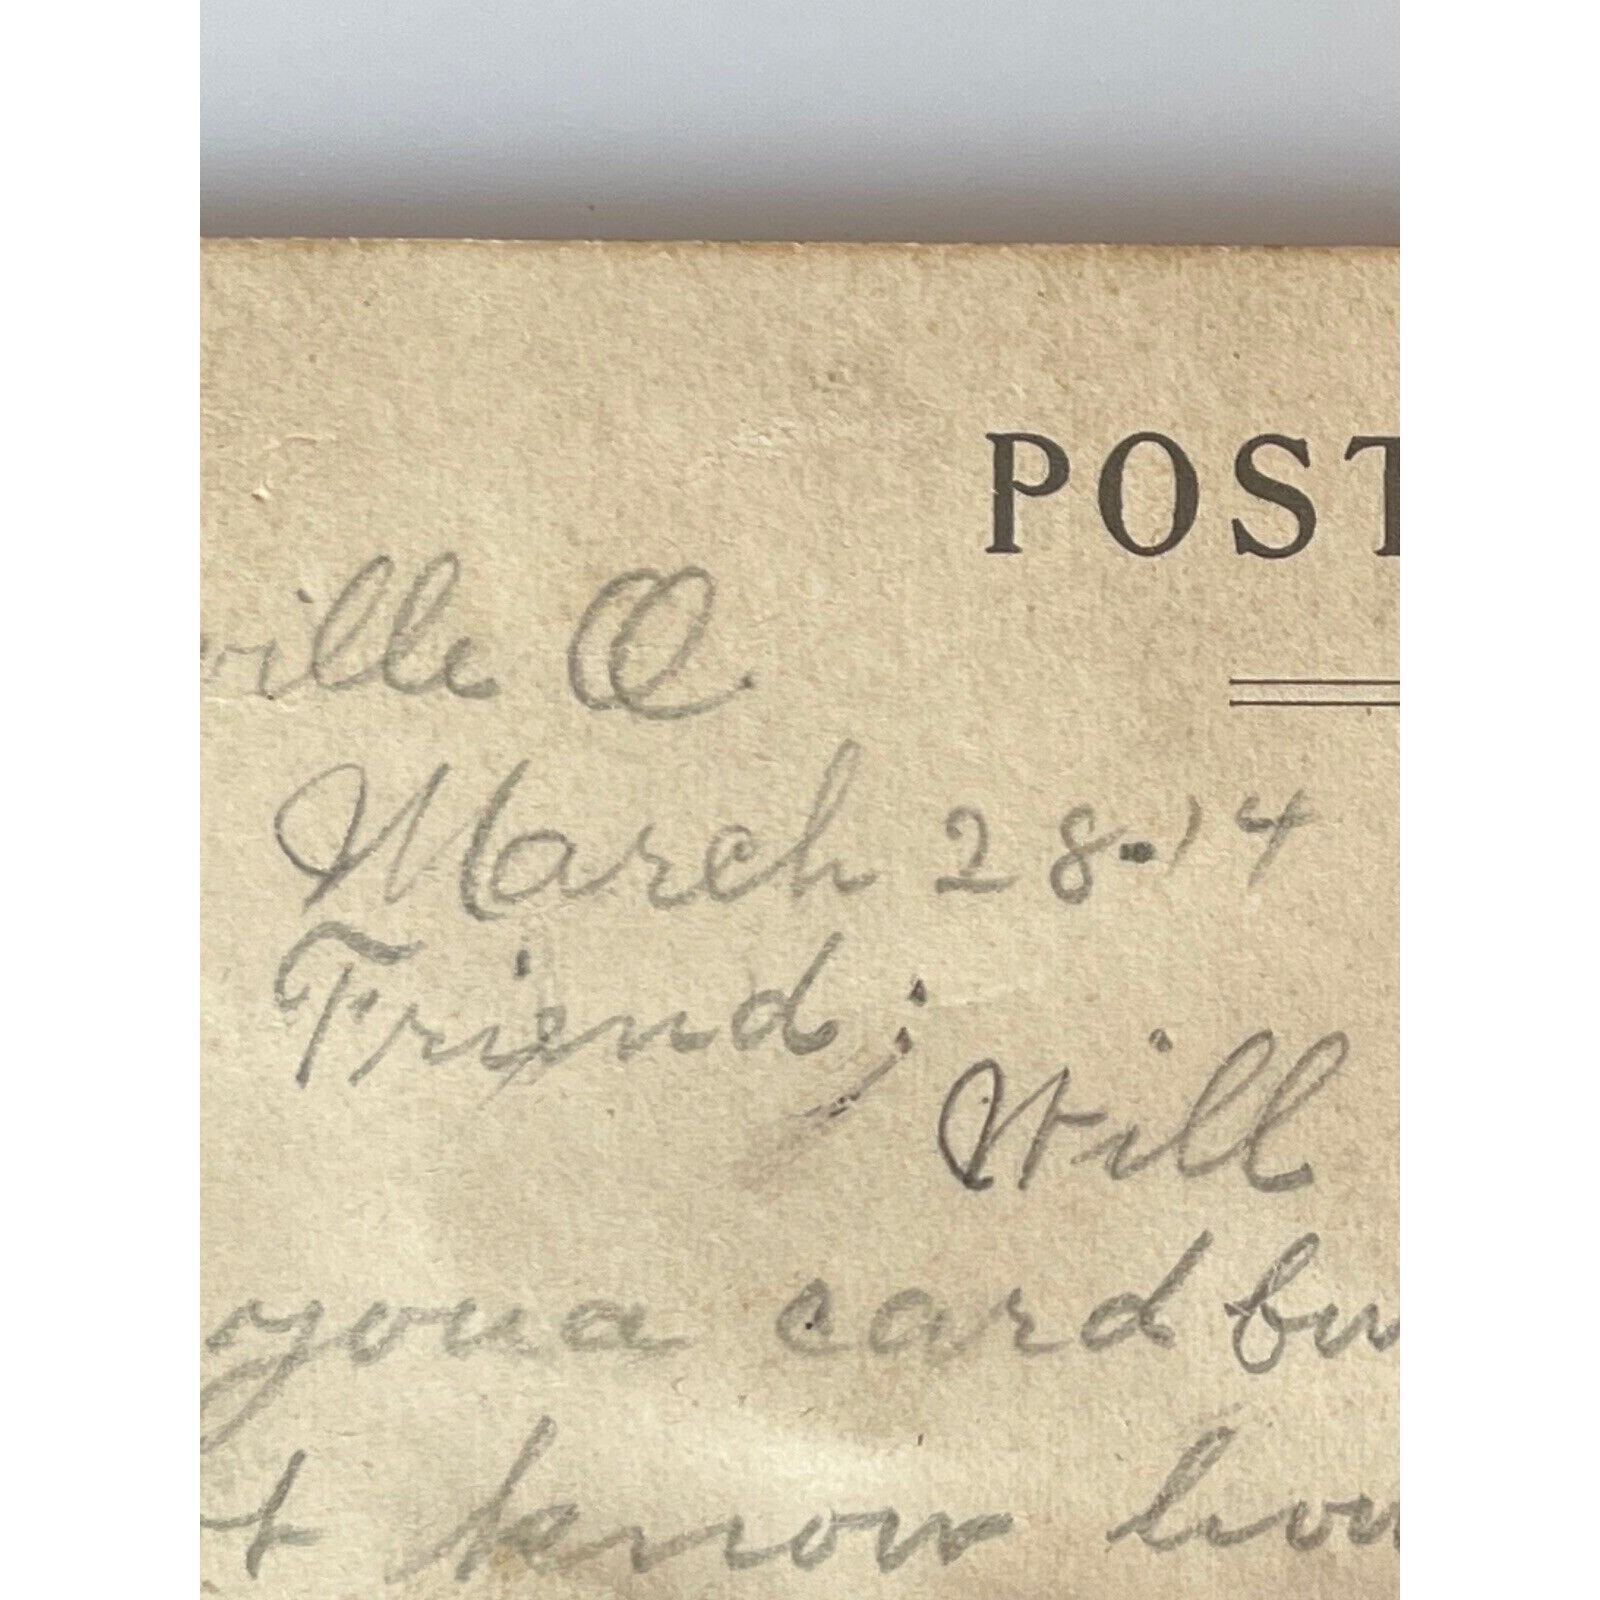 POST
ville O.
March 28-14
Friend;
Will
you a card bu
t know how